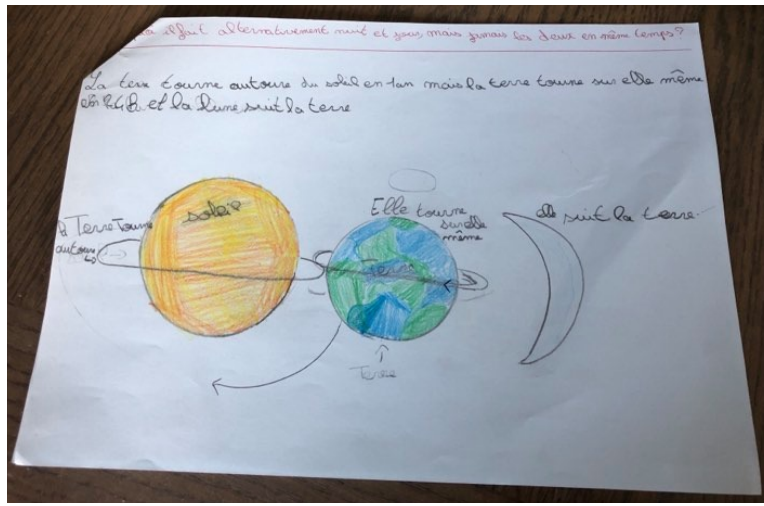 il fait alternativement nuit et jour, mais jamais les deux en même temps?
La terre tourne autoure du soleil en 1an mais la terre tourne sur elle même
en 24h et la lune suit la terre
soleil
la Terre Tourne
autoure
Elle tourne
sur elle
même
elle suit la terre.
Terre
Terre